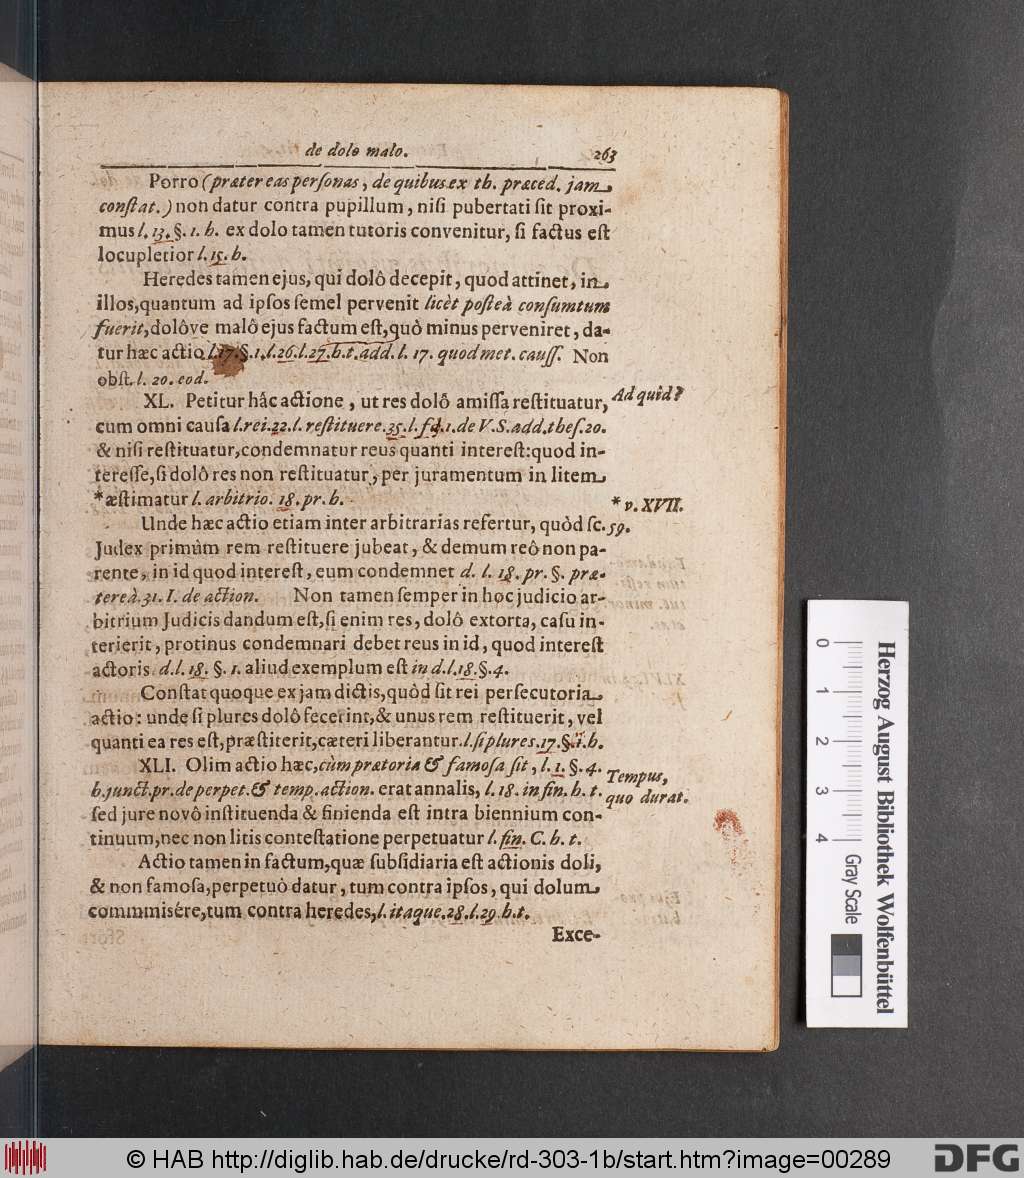 de dolo malo. 263
Porro (præter eas perſonas, de quibus ex th. præced. jam
conſtat.) non datur contra pupillum, niſi pubertati ſit proxi-
mus l. 13. §. 1. h. ex dolo tamen tutoris convenitur, ſi factus eſt
locupletior l. 15. h.
Heredes tamen ejus, qui dolô decepit, quod attinet, in
illos, quantum ad ipſos ſemel pervenit licèt poſteà conſumtum
fuerit, dolôve malô ejus factum eſt, quò minus perveniret, da-
tur hæc actio l. 17. §. 1. l. 26. l. 27. h. t. add. l. 17. quod met. cauſſ. Non
obſt. l. 20. eod.
XL. Petitur hâc actione, ut res dolô amiſſa reſtituatur, Ad quid?
cum omni cauſa l. rei. 22. l. reſtituere. 35. l. 1. de V. S. add. theſ. 20.
& niſi reſtituatur, condemnatur reus quanti intereſt: quod in-
tereſſe, ſi dolô res non reſtituatur, per juramentum in litem
* æſtimatur l. arbitrio. 18. pr. h. * v. XVII.
Unde hæc actio etiam inter arbitrarias refertur, quòd ſc. 59.
Judex primùm rem reſtituere jubeat, & demum reô non pa-
rente, in id quod intereſt, eum condemnet d. l. 18. pr. §. præ-
tereà. 31. I. de action. Non tamen ſemper in hoc judicio ar-
bitrium Judicis dandum eſt, ſi enim res, dolô extorta, caſu in-
terierit, protinus condemnari debet reus in id, quod intereſt
actoris d. l. 18. §. 1. aliud exemplum eſt in d. l. 18. §. 4.
Conſtat quoque ex jam dictis, quòd ſit rei perſecutoria
actio: unde ſi plures dolô fecerint, & unus rem reſtituerit, vel
quanti ea res eſt, præſtiterit, cæteri liberantur. l. ſi plures. 17. §. 1. h.
XLI. Olim actio hæc, cùm prætoria & famoſa ſit, l. 1. §. 4. Tempus,
h. junct. pr. de perpet. & temp. action. erat annalis, l. 18. in fin. h. t. quo durat.
ſed jure novô inſtituenda & finienda eſt intra biennium con-
tinuum, nec non litis conteſtatione perpetuatur l. fin. C. h. t.
Actio tamen in factum, quæ ſubſidiaria eſt actionis doli,
& non famoſa, perpetuò datur, tum contra ipſos, qui dolum
commmisére, tum contra heredes, l. itaque. 28. l. 29 h. t.
Exce-
0 1 2 3 4
Gray Scale
Herzog August Bibliothek Wolfenbüttel
© HAB http://diglib.hab.de/drucke/rd-303-1b/start.htm?image=00289
DFG